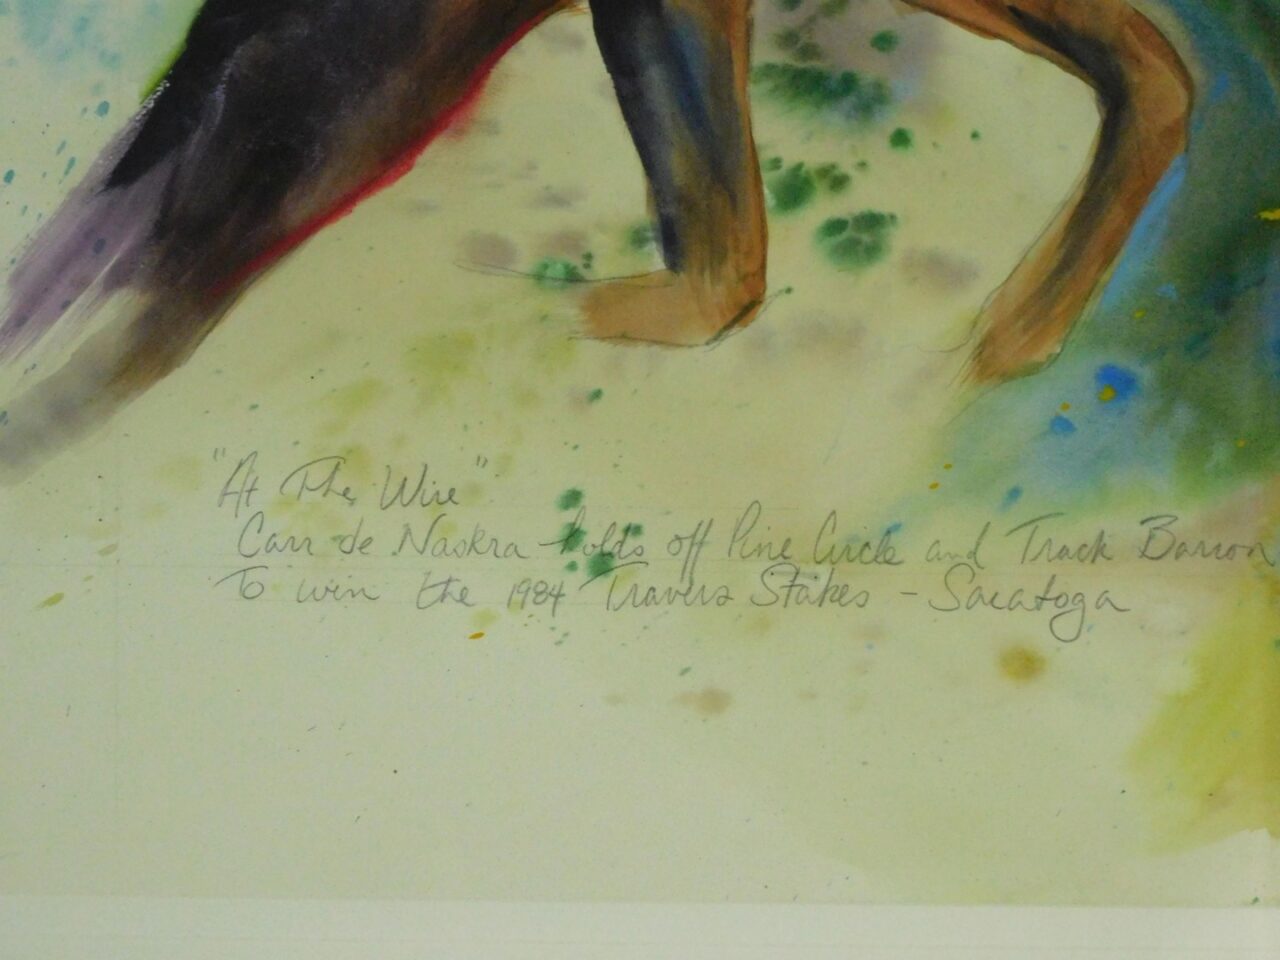 "At The Wire"
Carr de Naskra holds off Pine Circle and Track Barron
To win the 1984 Travers Stakes - Saratoga